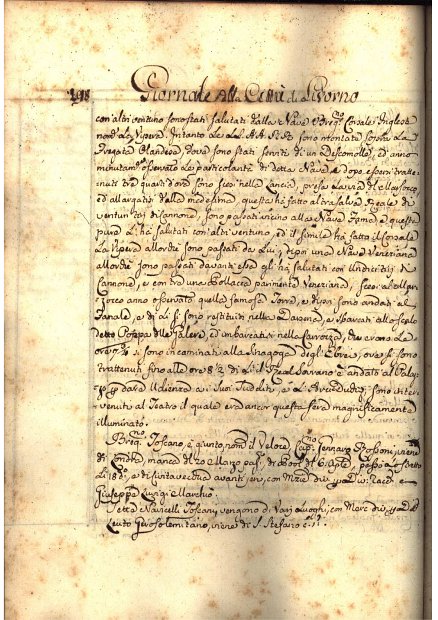 198 Giornale Alla Città di Livorno
con altri ventuno sono stati salutati dalla Nave Corsale Inglese
nom. La Vipera. Intanto Le LL. AA. RR. sono montate sopra La
Fregata Olandese, dove sono stati serviti di un , ed anno
minutam. osservato Le particolarità di detta Nave, e dopo essersi tratte-
nuti tre quarti d'ora sono scesi nella Lancia, presa La via del Marsocco
ed allargatisi dalla medesima, questa ha fatto altra salva Reale di
ventun tiri di Cannone, sono passati vicino alla Nave Fama, e questa
pure Li ha salutati con altri ventuno, ed il simile ha fatto il Corsale
La Vipera allorchè sono passati da Lui, di poi una Nave Veneziana
allorchè sono passati davanti essa gli ha salutati con Undici tiri di
Cannone, e con tre una Pollacca parimente Veneziana, scesi al Mar-
zocco anno osservato quella famosa Torre, e di poi sono andati al
Fanale, e di Lì si sono restituiti nella Darsena, e sbarcati allo scalo
detto Poppa alle Galere, ed imbarcati nella Carrozza, che erano Le
ore 7 1/4 si sono incaminati alla Sinagoga degl'Ebrei, ove si sono
trattenuti fino alle ore 8 1/2 di Lì il Real Sovrano è andato al Palaz-
zo p dare Udienza ai suoi sudditi, e Li Arciduchi sono
venuti al Teatro il quale era ancor questa sera magnificamente
illuminato.
Brig.no Toscano, è giunto, nom. il Veloce, Cap.no Gennaro viene
di Londra, manca del 20 Marzo pas. 
Li 18 , e di Civitavecchia avanti jeri, con 
Giuseppe Luigi
Sette Navicelli Toscani vengono di Varj Luoghi, con Merc. div.
Leuto Genovese viene di S. Stefano